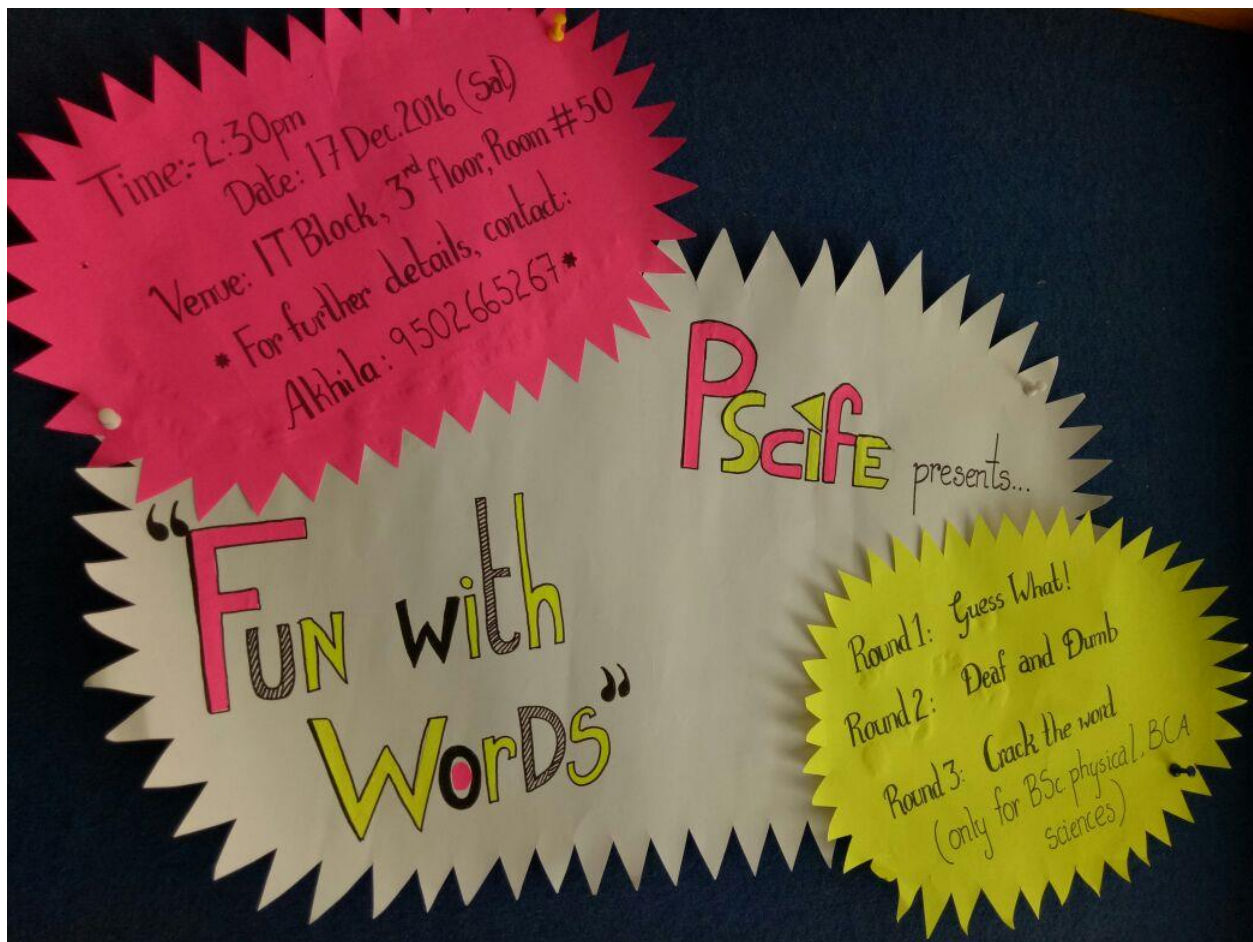 Time:- 2:30pm
Date: 17 Dec. 2016 (Sat)
Venue: IT Block, 3rd floor, Room #50
* For further details, contact:
Akhila: 9502665267 *
PSciFE presents...
"Fun with
WorDs"
Round 1: Guess What!
Round 2: Deaf and Dumb
Round 3: Crack the word
(only for BSc physical, BCA
sciences)